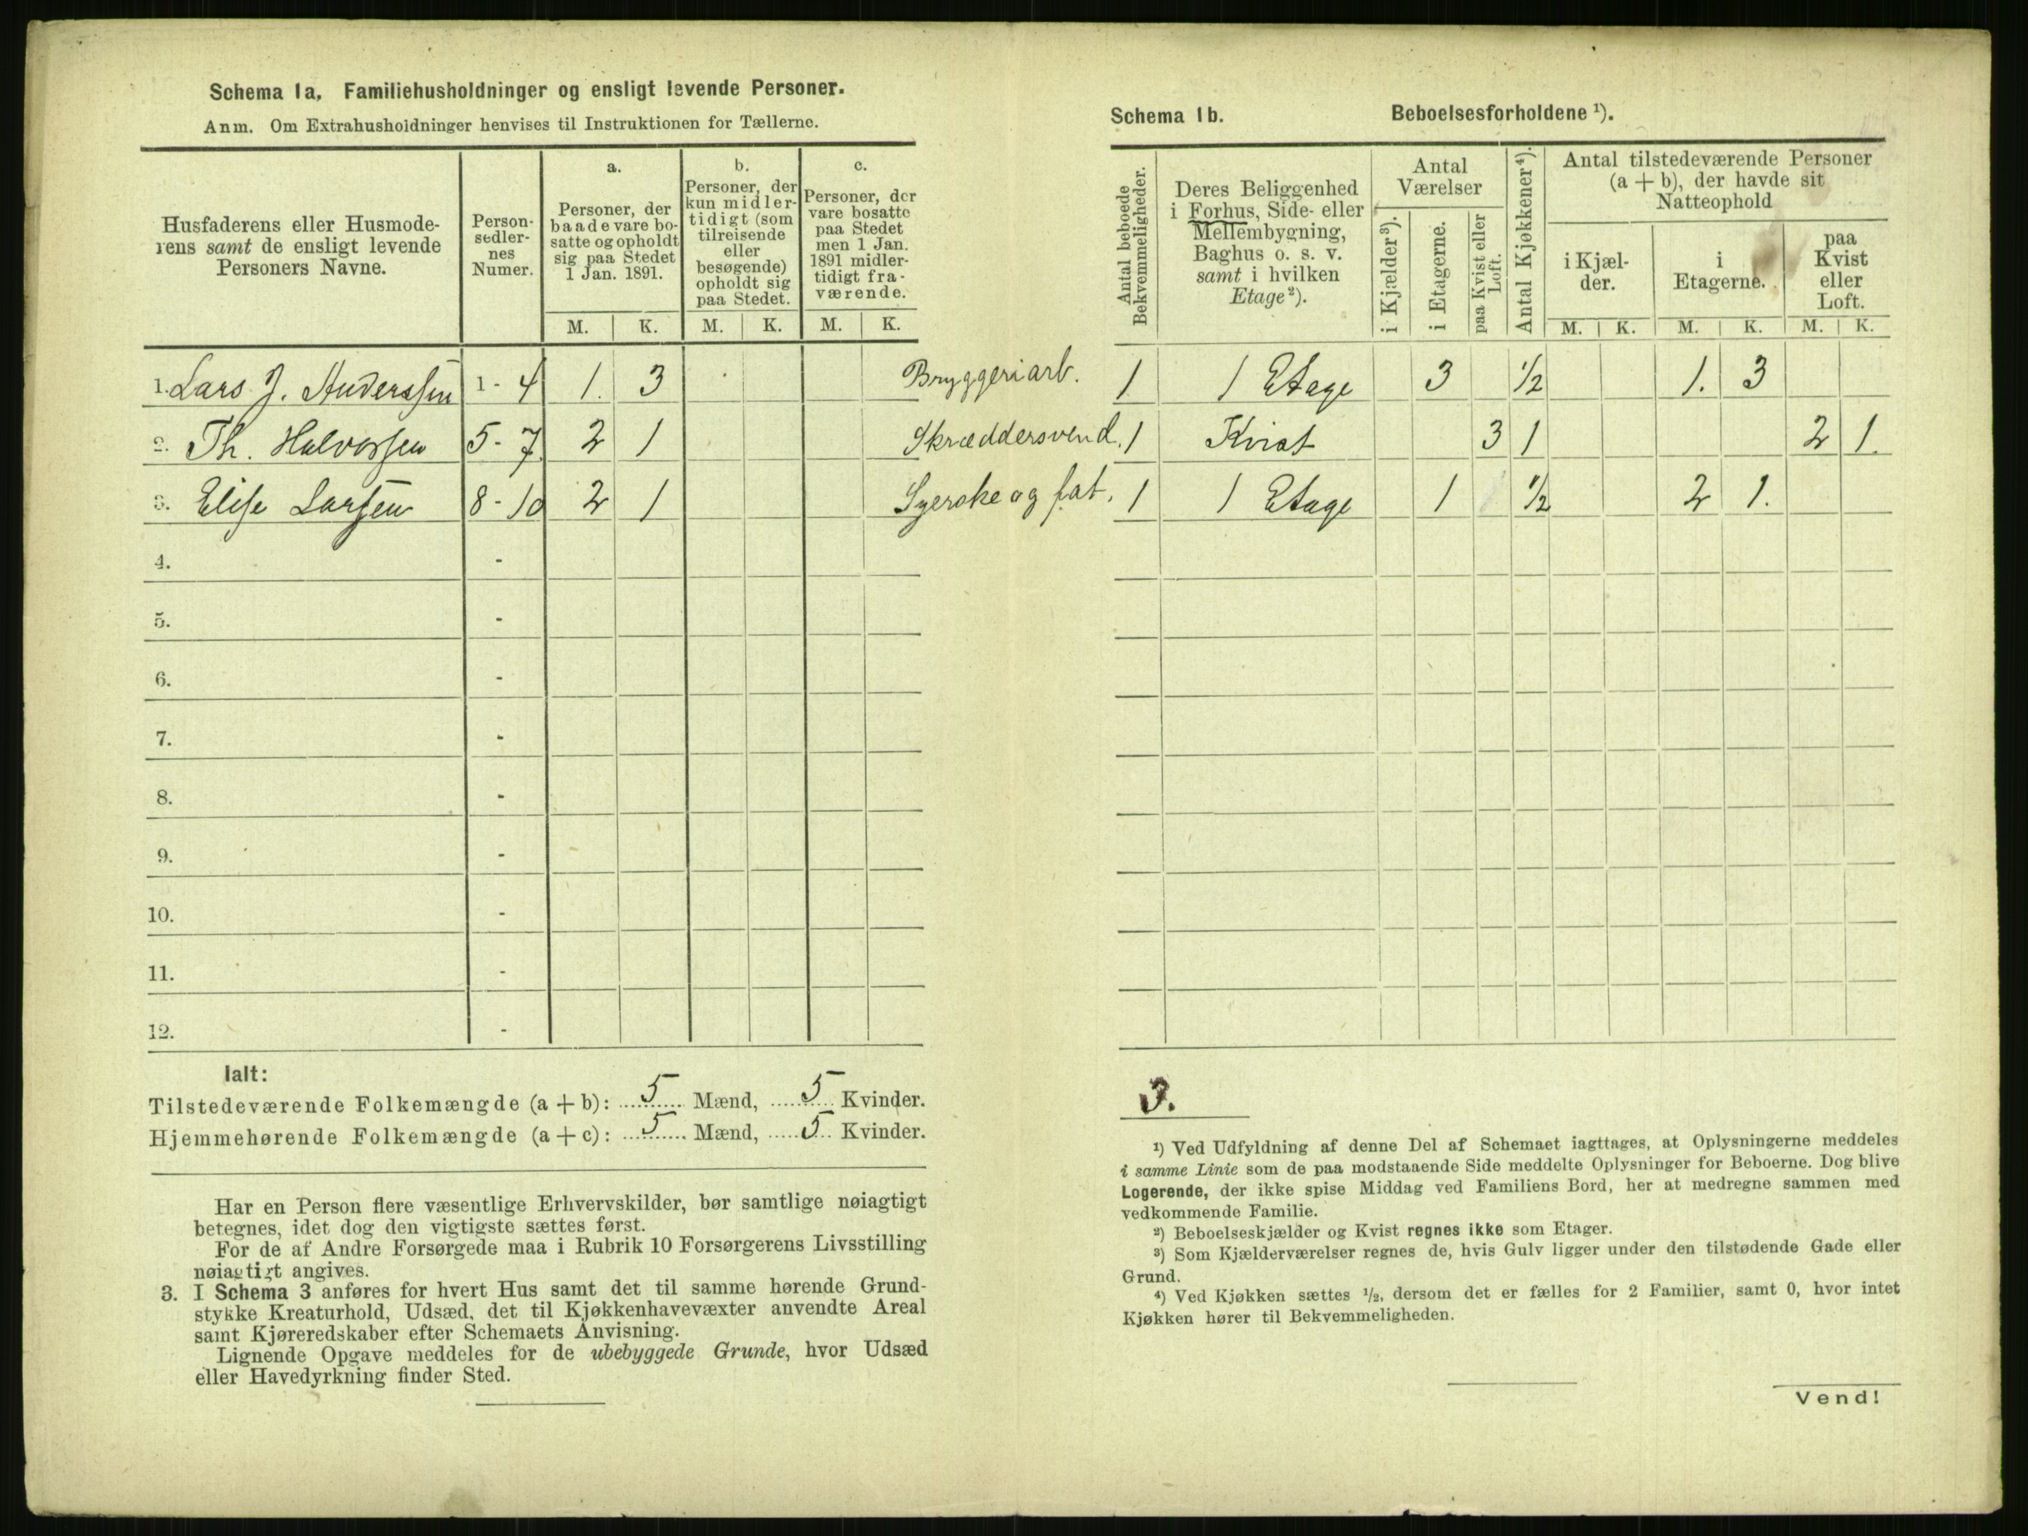 Schema 1a. Familiehusholdninger og ensligt levende Personer.
Anm. Om Extrahusholdninger henvises til Instruktionen for Tællerne.
Husfaderens eller Husmode-
rens samt de ensligt levende
Personers Navne.
Person-
sedler-
nes
Numer.
a.
Personer, der
baade vare bo-
satte og opholdt
sig paa Stedet
1 Jan. 1891.
b.
Personer, der
kun midler-
tidigt (som
tilreisende
eller
besøgende)
opholdt sig
paa Stedet.
c.
Personer, der
vare bosatte
paa Stedet
men 1 Jan.
1891 midler-
tidigt fra-
værende.
M. K. M. K. M. K.
1. Lars J. Anderssen 1 - 4 1. 3 Bryggeriarb.
2. Th. Halvorsen 5 - 7 2 1 Skræddersvend.
3. Elise Larsen 8 - 10 2 1 Syerske og fat.
4. -
5. -
6. -
7. -
8. -
9. -
10. -
11. -
12. -
Ialt:
Tilstedeværende Folkemængde (a + b): 5 Mænd, 5 Kvinder.
Hjemmehørende Folkemængde (a + c): 5 Mænd, 5 Kvinder.
Har en Person flere væsentlige Erhvervskilder, bør samtlige nøiagtigt
betegnes, idet dog den vigtigste sættes først.
For de af Andre Forsørgede maa i Rubrik 10 Forsørgerens Livsstilling
nøiagtigt angives.
3. I Schema 3 anføres for hvert Hus samt det til samme hørende Grund-
stykke Kreaturhold, Udsæd, det til Kjøkkenhavevæxter anvendte Areal
samt Kjøreredskaber efter Schemaets Anvisning.
Lignende Opgave meddeles for de ubebyggede Grunde, hvor Udsæd
eller Havedyrkning finder Sted.
Schema 1b. Beboelsesforholdene ¹).
Antal beboede
Bekvemmeligheder.
Deres Beliggenhed
i Forhus, Side- eller
Mellembygning,
Baghus o. s. v.
samt i hvilken
Etage ²).
Antal
Værelser
i Kjælder ³).
i Etagerne.
paa Kvist eller
Loft.
Antal Kjøkkener ⁴).
Antal tilstedeværende Personer
(a + b), der havde sit
Natteophold
i Kjæl-
der.
i
Etagerne.
paa
Kvist
eller
Loft.
M. K. M. K. M. K.
1 1 Etage 3 1/2 1. 3
1 Kvist 3 1 2 1.
1 1 Etage 1 1/2 2 1.
3.
¹) Ved Udfyldning af denne Del af Schemaet iagttages, at Oplysningerne meddeles
i samme Linie som de paa modstaaende Side meddelte Oplysninger for Beboerne. Dog blive
Logerende, der ikke spise Middag ved Familiens Bord, her at medregne sammen med
vedkommende Familie.
²) Beboelseskjælder og Kvist regnes ikke som Etager.
³) Som Kjælderværelser regnes de, hvis Gulv ligger under den tilstødende Gade eller
Grund.
⁴) Ved Kjøkken sættes ½, dersom det er fælles for 2 Familier, samt 0, hvor intet
Kjøkken hører til Bekvemmeligheden.
Vend!